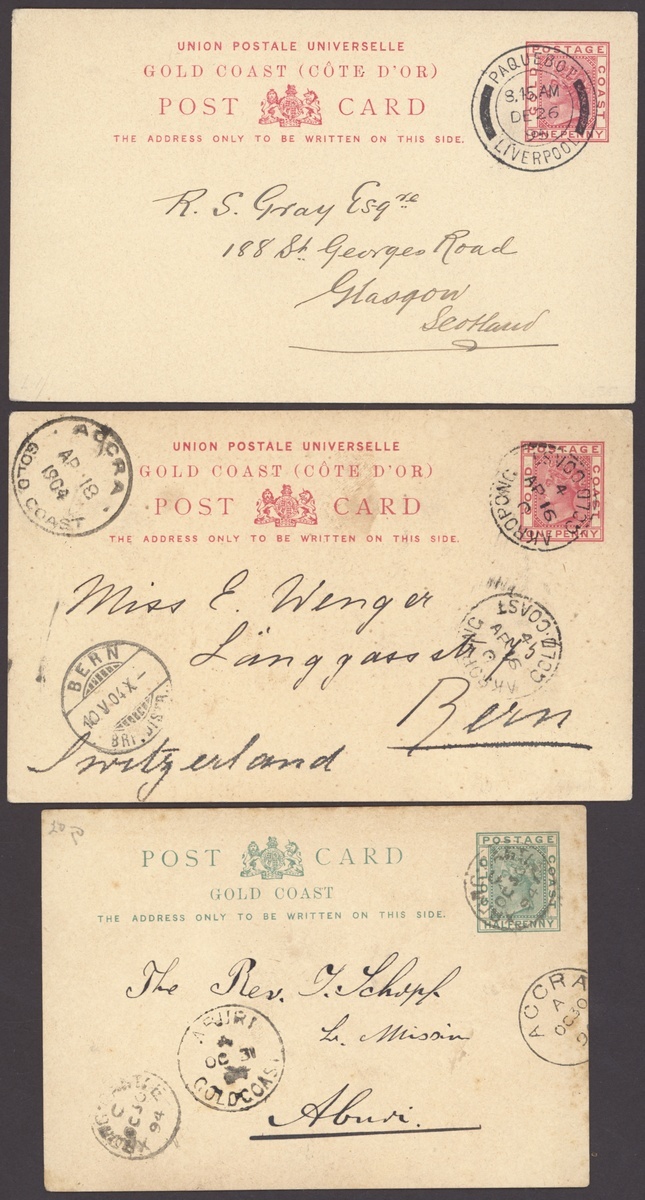 UNION POSTALE UNIVERSELLE
GOLD COAST (CÔTE D'OR)
POST CARD
THE ADDRESS ONLY TO BE WRITTEN ON THIS SIDE.
POSTAGE
COAST
ONE PENNY
PAQUEBOT
8.15 AM
DE 26
LIVERPOOL
R. S. Gray Esqre
188 St. Georges Road
Glasgow
Scotland
ACCRA
AP 18
1904
GOLD COAST
UNION POSTALE UNIVERSELLE
GOLD COAST (CÔTE D'OR)
POST CARD
THE ADDRESS ONLY TO BE WRITTEN ON THIS SIDE.
POSTAGE
COAST
ONE PENNY
AKROPONG
AP 16
GOLD.COAST
Miss E. Wenger
Länggassstr. 75
Bern
Switzerland
BERN
10 V.04 X-
BRF. DISTR
AKROPONG
GOLD.COAST
POST CARD
GOLD COAST
THE ADDRESS ONLY TO BE WRITTEN ON THIS SIDE.
POSTAGE
GOLD
COAST
HALFPENNY
94
The Rev. J. Schopf
Aburi.
ABURI
OC 31
GOLD COAST
ACCRA
A
OC 30
9
C
OC 30
94